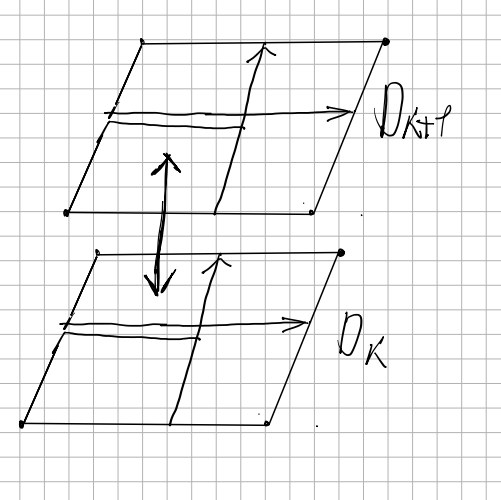 D_{K+1}
D_K